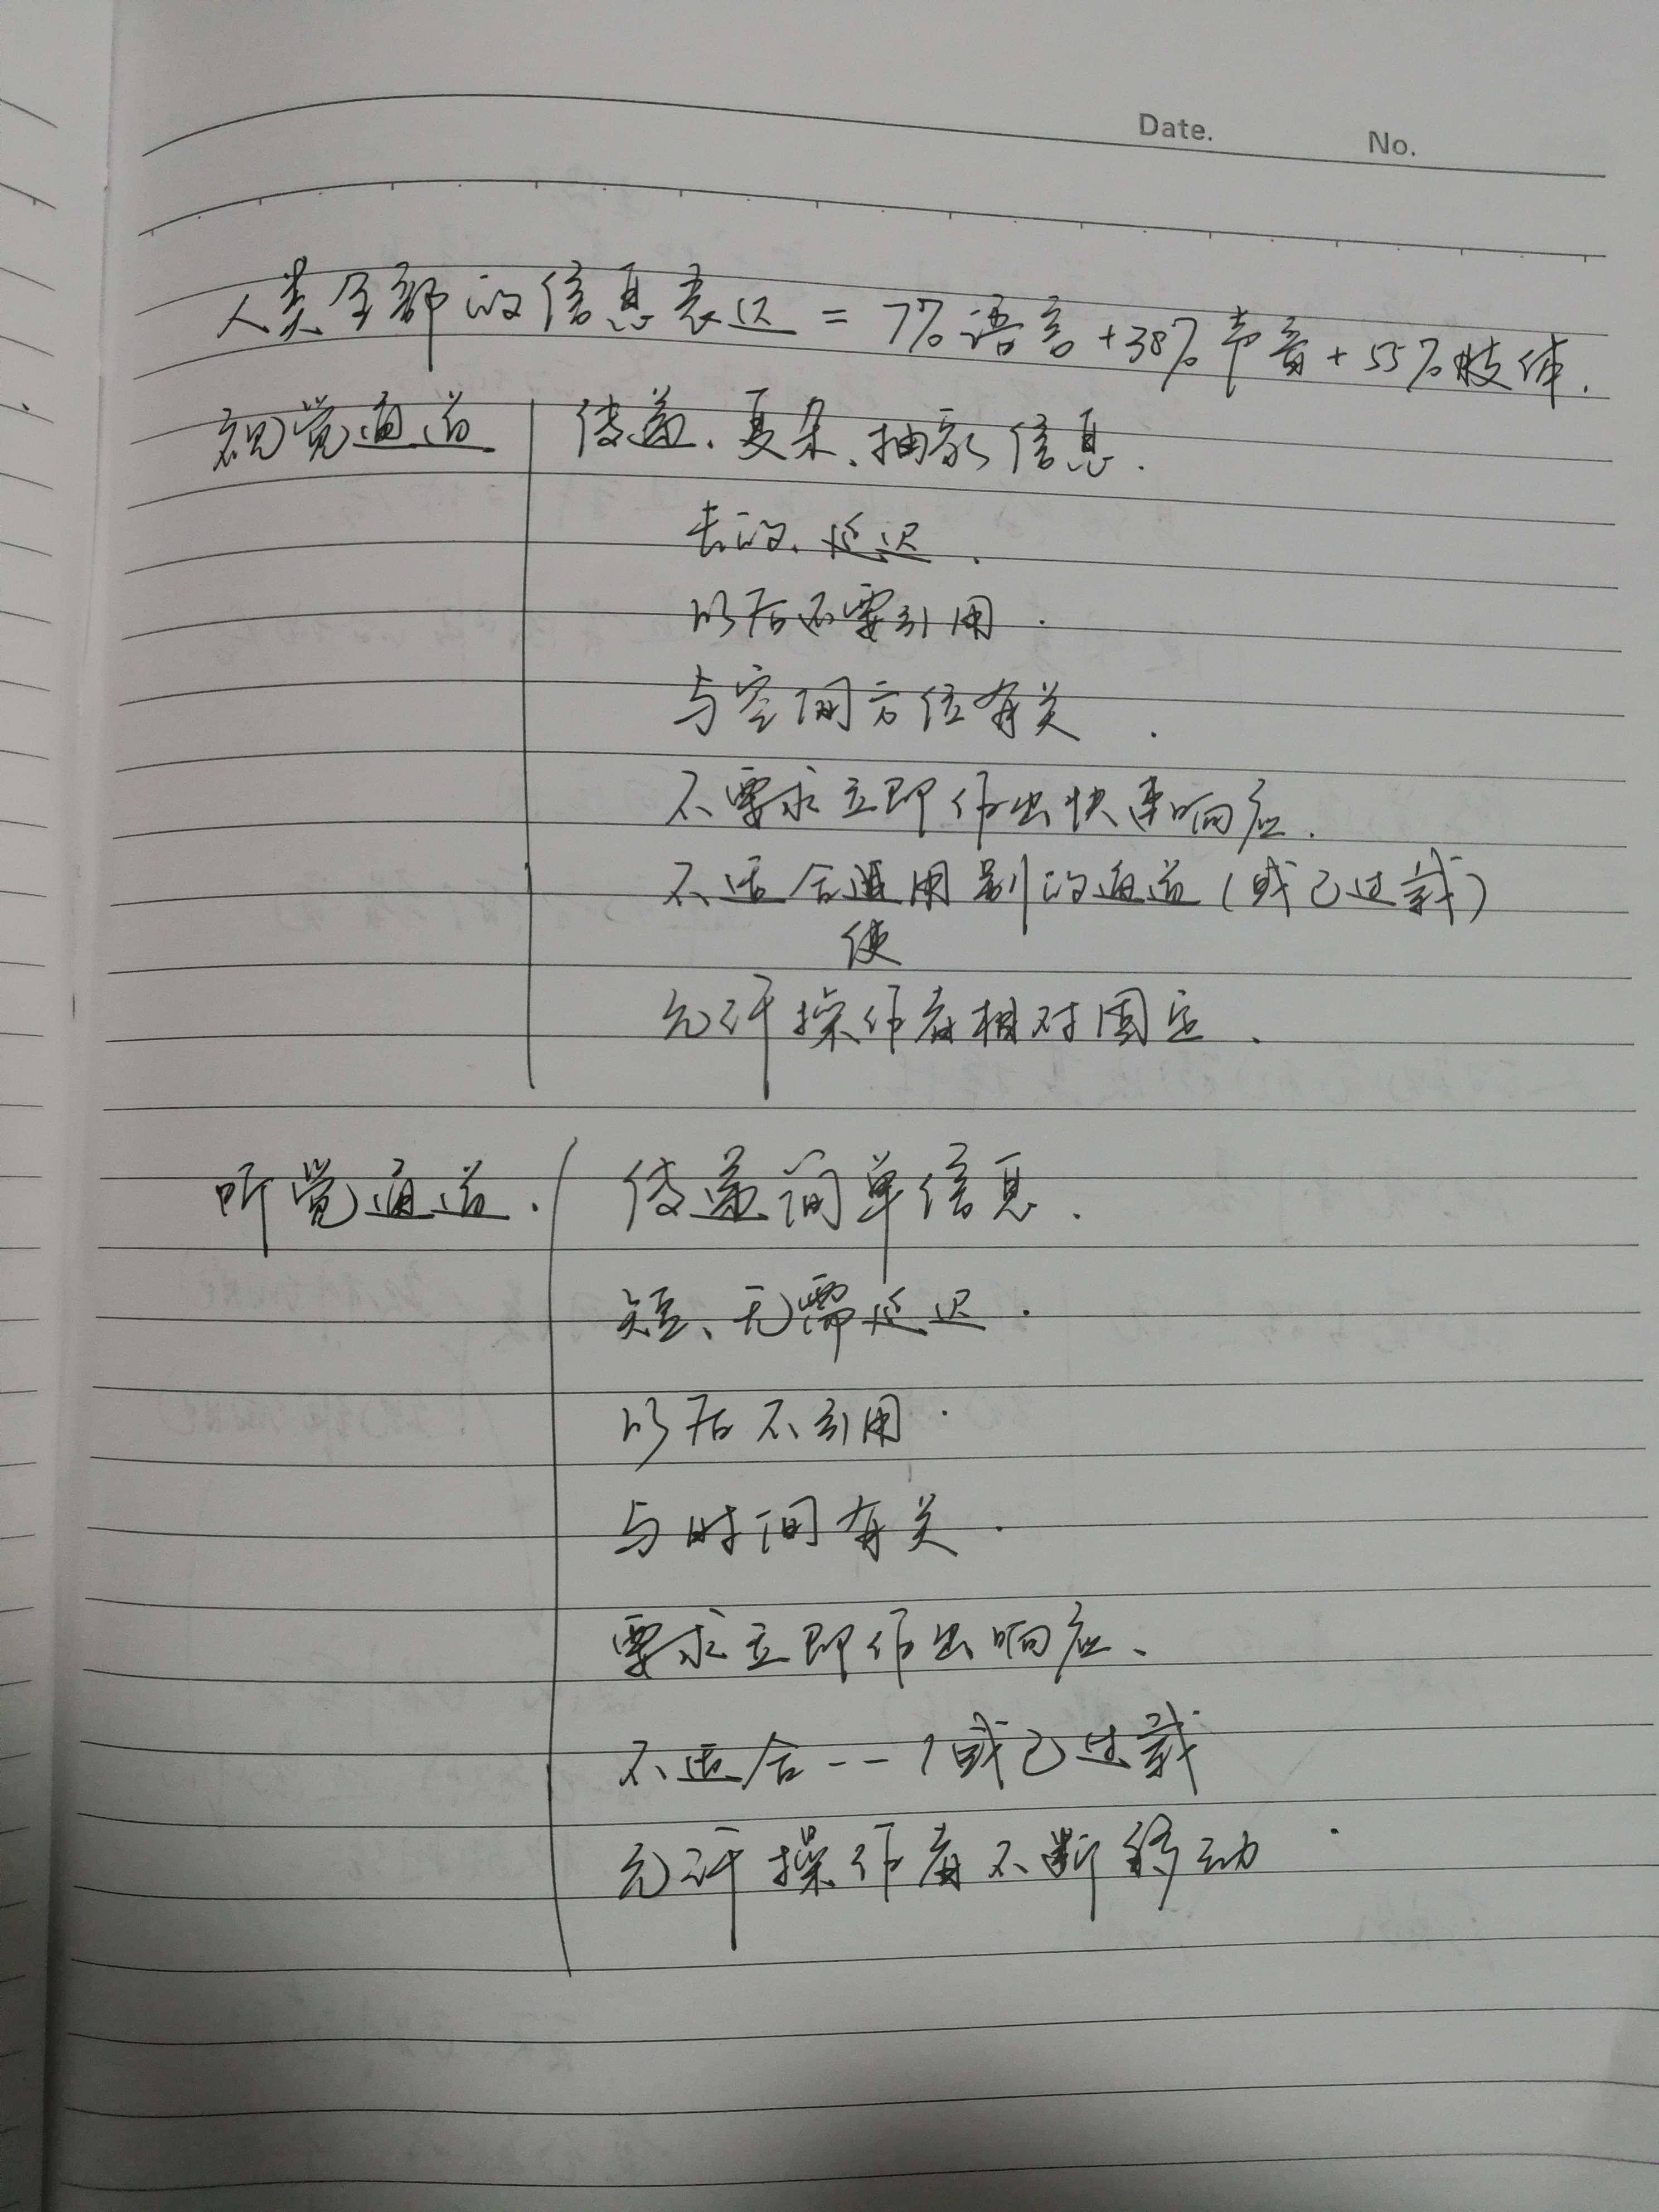 Date. No.
人类全部的信息表达 = 7%语言+38%声音+55%肢体.
视觉通道 传递、复杂、抽象信息.
长的、延迟.
以后还要引用.
与空间方位有关.
不要求立即作出快速响应.
不适合使用别的通道(或已过载)
允许操作者相对固定.
听觉通道. 传递简单信息.
短、无需延迟.
以后不引用.
与时间有关.
要求立即作出响应、
不适合--(或已过载
允许操作者不断移动.